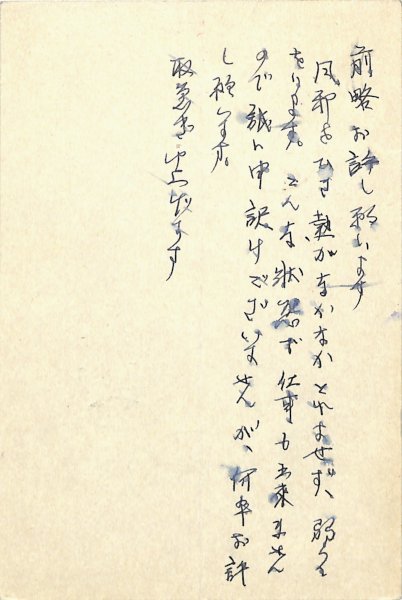 前略お許し願います
風邪をひき熱がなかなかとれませず、弱って
をります。こんな状態で仕事も出来ません
ので誠に申訳けございませんが、何卒お許
し願います。
取急ぎ申上げます